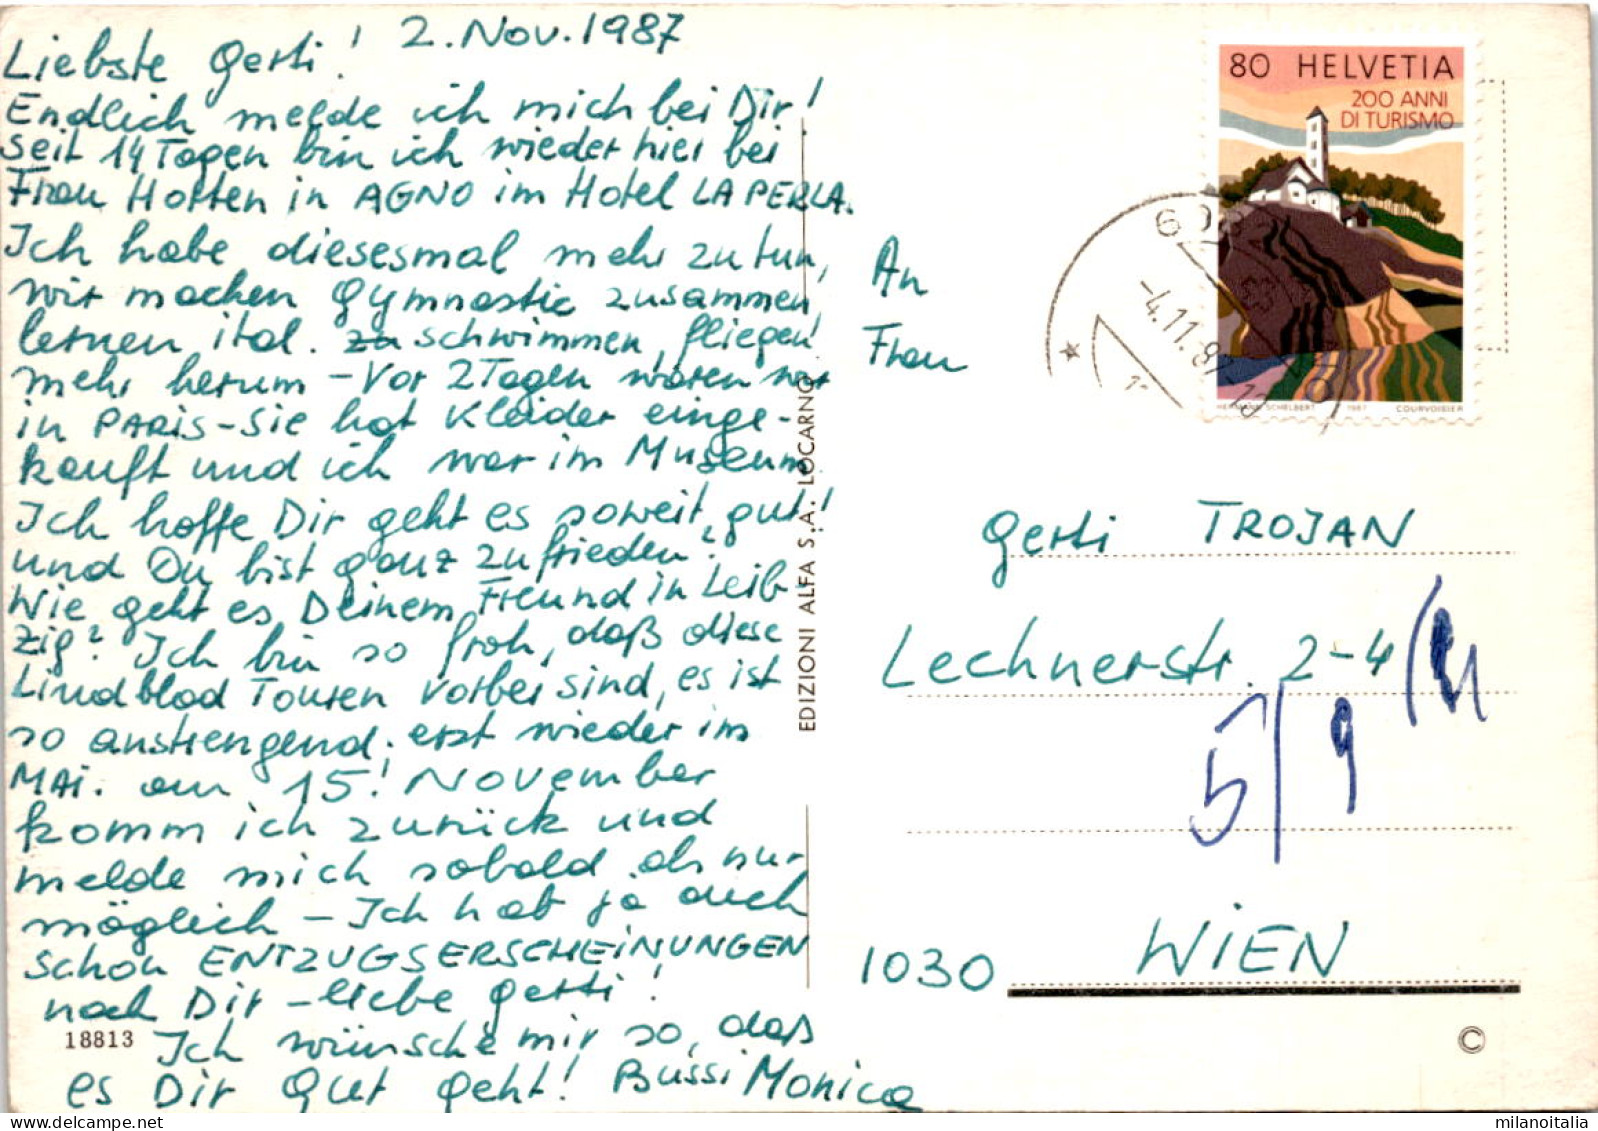 Liebste Gerti! 2. Nov. 1987
Endlich melde ich mich bei Dir!
Seit 14 Tagen bin ich wieder hier bei
Frau Horten in AGNO im Hotel LA PERLA.
Ich habe diesesmal mehr zu tun,
wir machen Gymnastic zusammen,
lernen ital. zu schwimmen, fliegen
mehr herum - Vor 2 Tagen waren wir
in PARIS - Sie hat Kleider einge-
kauft und ich war im Museum.
Ich hoffe Dir geht es soweit gut!
und Du bist ganz zufrieden?
Wie geht es Deinem Freund in Leib-
zig? Ich bin so froh, daß diese
Lindblad Touren vorbei sind, es ist
so anstrengend, erst wieder im
MAI. am 15! November
komm ich zurück und
melde mich sobald als nur
möglich - Ich hab ja auch
schon ENTZUGSERSCHEINUNGEN
nach Dir - liebe Gerti!
Ich wünsche mir so, daß
es Dir Gut geht! Bussi Monica
18813
EDIZIONI ALFA S.A. LOCARNO
80 HELVETIA
200 ANNI
DI TURISMO
HERMANN SCHELBERT 1987 COURVOISIER
-4.11.87
An
Frau
Gerti TROJAN
Lechnerstr. 2-4/
5/9
1030 WIEN
©
milanoitalia